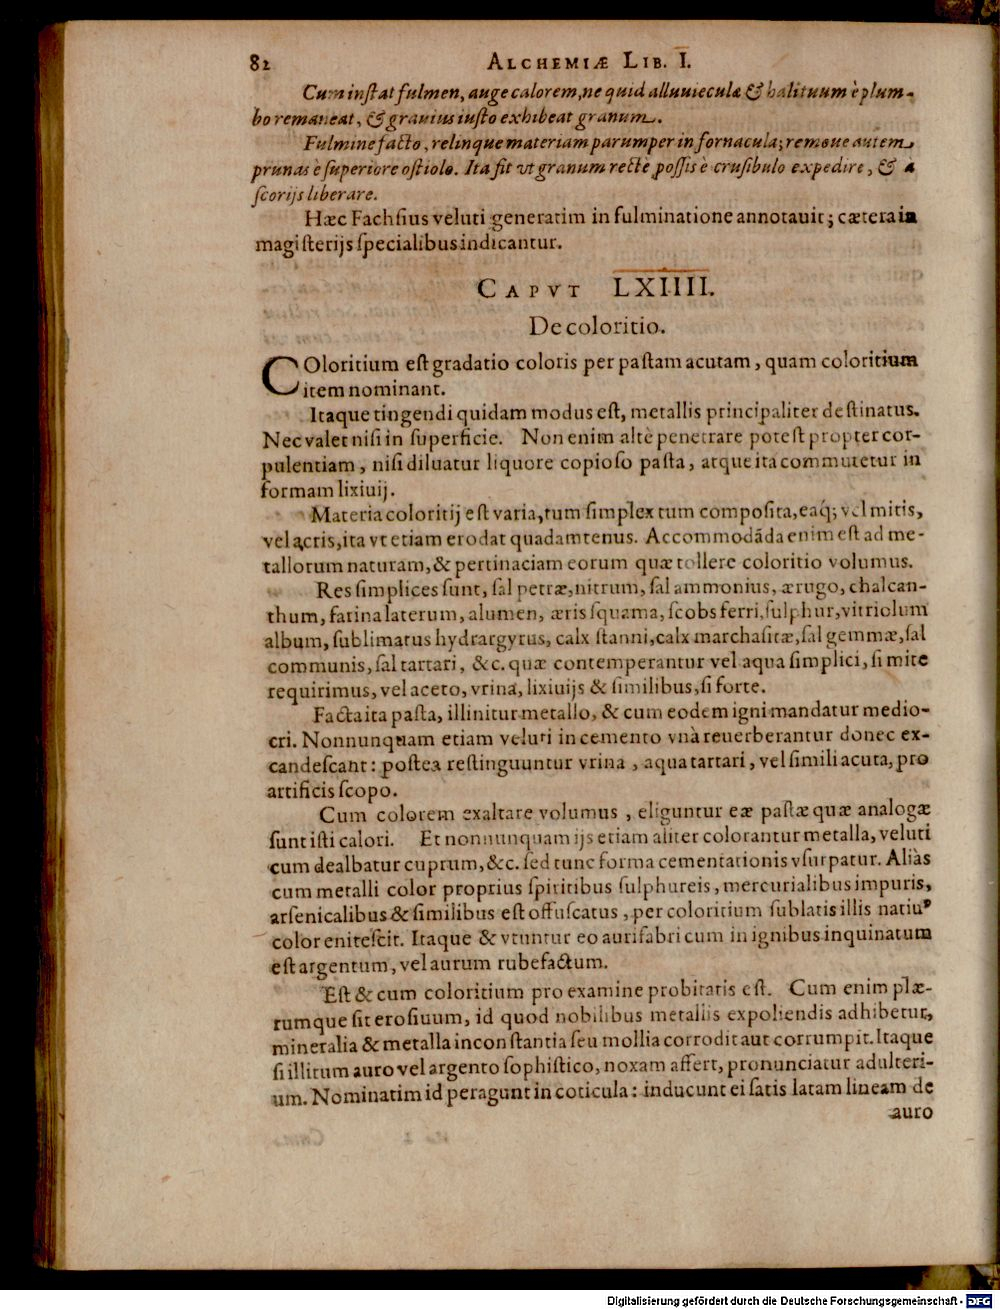 82 ALCHEMIÆ LIB. I.
Cum inſtat fulmen, auge calorem, ne quid alluuieculæ & halituum è plum-
bo remaneat, & grauius iuſto exhibeat granum.
Fulmine facto, relinque materiam parumper in fornacula; remoue autem
prunas è ſuperiore oſtiolo. Ita fit vt granum rectè poſſis è cruſibulo expedire, & à
ſcorijs liberare.
Hæc Fachſius veluti generatim in fulminatione annotauit; cætera in
magiſterijs ſpecialibus indicantur.
CAPVT LXIIII.
De coloritio.
COloritium eſt gradatio coloris per paſtam acutam, quam coloritium
item nominant.
Itaque tingendi quidam modus eſt, metallis principaliter deſtinatus.
Nec valet niſi in ſuperficie. Non enim altè penetrare poteſt propter cor-
pulentiam, niſi diluatur liquore copioſo paſta, atque ita commutetur in
formam lixiuij.
Materia coloritij eſt varia, tum ſimplex tum compoſita, eaq́; vel mitis,
vel acris, ita vt etiam erodat quadamtenus. Accommodãda enim eſt ad me-
tallorum naturam, & pertinaciam eorum quæ tollere coloritio volumus.
Res ſimplices ſunt, ſal petræ, nitrum, ſal ammonius, ærugo, chalcan-
thum, farina laterum, alumen, æris ſquama, ſcobs ferri, ſulphur, vitriolum
album, ſublimatus hydrargyrus, calx ſtanni, calx marchaſitæ, ſal gemmæ, ſal
communis, ſal tartari, &c. quæ contemperantur vel aqua ſimplici, ſi mite
requirimus, vel aceto, vrina, lixiuijs & ſimilibus, ſi forte.
Facta ita paſta, illinitur metallo, & cum eodem igni mandatur medio-
cri. Nonnunquam etiam veluti in cemento vnà reuerberantur donec ex-
candeſcant: poſtea reſtinguuntur vrina, aqua tartari, vel ſimili acuta, pro
artificis ſcopo.
Cum colorem exaltare volumus, eliguntur eæ paſtæ quæ analogæ
ſunt iſti calori. Et nonnunquam ijs etiam aliter colorantur metalla, veluti
cum dealbatur cuprum, &c. ſed tunc forma cementationis vſurpatur. Aliàs
cum metalli color proprius ſpiritibus ſulphureis, mercurialibus impuris,
arſenicalibus & ſimilibus eſt offuſcatus, per coloritium ſublatis illis natiuꝰ
color eniteſcit. Itaque & vtuntur eo aurifabri cum in ignibus inquinatum
eſt argentum, vel aurum rubefactum.
Eſt & cum coloritium pro examine probitatis eſt. Cum enim plæ-
rumque ſit eroſiuum, id quod nobilibus metallis expoliendis adhibetur,
mineralia & metalla inconſtantia ſeu mollia corrodit aut corrumpit. Itaque
ſi illitum auro vel argento ſophiſtico, noxam affert, pronunciatur adulteri-
um. Nominatim id peragunt in coticula: inducunt ei ſatis latam lineam de
auro
Digitalisierung gefördert durch die Deutsche Forschungsgemeinschaft - DFG